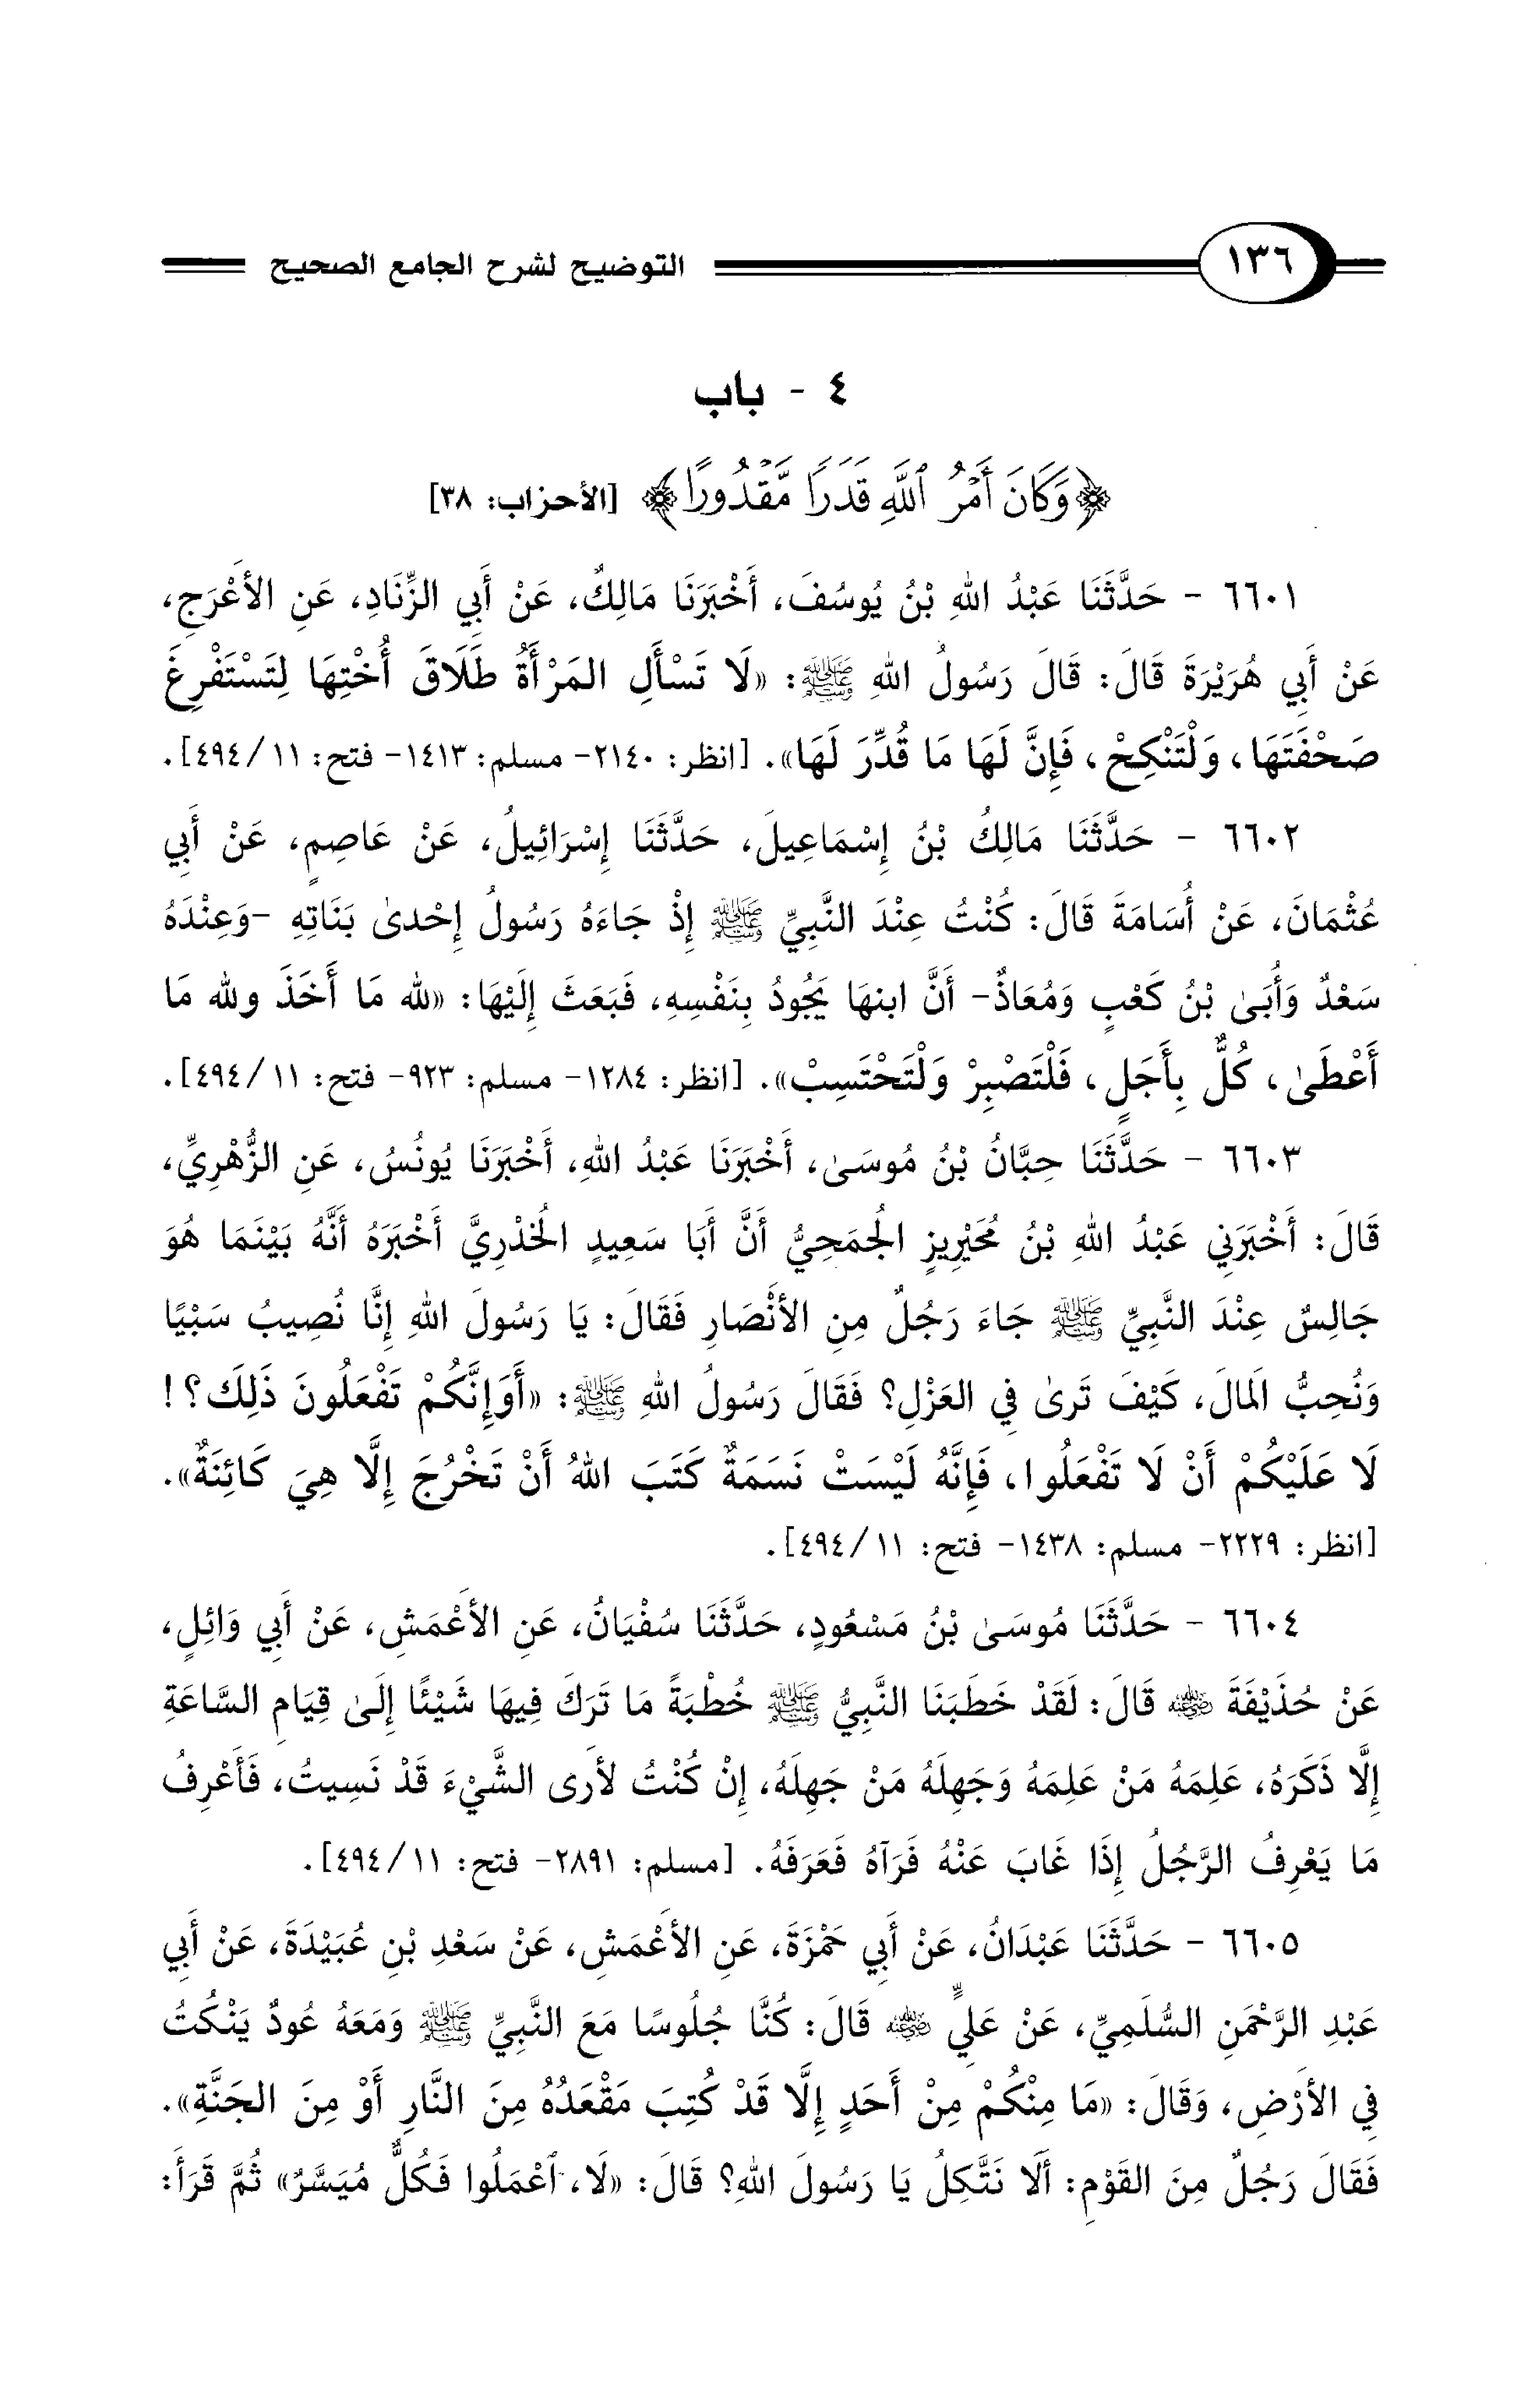 ١٣٦ التوضيح لشرح الجامع الصحيح
٤ - باب
﴿وَكَانَ أَمْرُ ٱللَّهِ قَدَرًا مَّقْدُورًا﴾ [الأحزاب: ٣٨]
٦٦٠١ - حَدَّثَنَا عَبْدُ اللهِ بْنُ يُوسُفَ، أَخْبَرَنَا مَالِكٌ، عَنْ أَبِي الزِّنَادِ، عَنِ الأَعْرَجِ،
عَنْ أَبِي هُرَيْرَةَ قَالَ: قَالَ رَسُولُ اللهِ ﷺ: «لَا تَسْأَلِ المَرْأَةُ طَلَاقَ أُخْتِهَا لِتَسْتَفْرِغَ
صَحْفَتَهَا، وَلْتَنْكِحْ، فَإِنَّ لَهَا مَا قُدِّرَ لَهَا». [انظر: ٢١٤٠- مسلم: ١٤١٣- فتح: ١١/ ٤٩٤].
٦٦٠٢ - حَدَّثَنَا مَالِكُ بْنُ إِسْمَاعِيلَ، حَدَّثَنَا إِسْرَائِيلُ، عَنْ عَاصِمٍ، عَنْ أَبِي
عُثْمَانَ، عَنْ أُسَامَةَ قَالَ: كُنْتُ عِنْدَ النَّبِيِّ ﷺ إِذْ جَاءَهُ رَسُولُ إِحْدىٰ بَنَاتِهِ -وَعِنْدَهُ
سَعْدٌ وَأُبَىٰ بْنُ كَعْبٍ وَمُعَاذٌ- أَنَّ ابنهَا يَجُودُ بِنَفْسِهِ، فَبَعَثَ إِلَيْهَا: «لله مَا أَخَذَ ولله مَا
أَعْطَىٰ، كُلٌّ بِأَجَلٍ، فَلْتَصْبِرْ وَلْتَحْتَسِبْ». [انظر: ١٢٨٤- مسلم: ٩٢٣- فتح: ١١/ ٤٩٤].
٦٦٠٣ - حَدَّثَنَا حِبَّانُ بْنُ مُوسَىٰ، أَخْبَرَنَا عَبْدُ اللهِ، أَخْبَرَنَا يُونُسُ، عَنِ الزُّهْرِيِّ،
قَالَ: أَخْبَرَنِي عَبْدُ اللهِ بْنُ مُحَيْرِيزٍ الجُمَحِيُّ أَنَّ أَبَا سَعِيدٍ الخُذْرِيَّ أَخْبَرَهُ أَنَّهُ بَيْنَمَا هُوَ
جَالِسٌ عِنْدَ النَّبِيِّ ﷺ جَاءَ رَجُلٌ مِنِ الأَنْصَارِ فَقَالَ: يَا رَسُولَ اللهِ إِنَّا نُصِيبُ سَبْيًا
وَنُحِبُّ المَالَ، كَيْفَ تَرىٰ فِي العَزْلِ؟ فَقَالَ رَسُولُ اللهِ ﷺ: «أَوَإِنَّكُمْ تَفْعَلُونَ ذَلِكَ؟!
لَا عَلَيْكُمْ أَنْ لَا تَفْعَلُوا، فَإِنَّهُ لَيْسَتْ نَسَمَةٌ كَتَبَ اللهُ أَنْ تَخْرُجَ إِلَّا هِيَ كَائِنَةٌ».
[انظر: ٢٢٢٩- مسلم: ١٤٣٨- فتح: ١١/ ٤٩٤].
٦٦٠٤ - حَدَّثَنَا مُوسَىٰ بْنُ مَسْعُودٍ، حَدَّثَنَا سُفْيَانُ، عَنِ الأَعْمَشِ، عَنْ أَبِي وَائِلٍ،
عَنْ حُذَيْفَةَ رضي الله عنه قَالَ: لَقَدْ خَطَبَنَا النَّبِيُّ ﷺ خُطْبَةً مَا تَرَكَ فِيهَا شَيْئًا إِلَىٰ قِيَامِ السَّاعَةِ
إِلَّا ذَكَرَهُ، عَلِمَهُ مَنْ عَلِمَهُ وَجَهِلَهُ مَنْ جَهِلَهُ، إِنْ كُنْتُ لأَرى الشَّيْءَ قَدْ نَسِيتُ، فَأَعْرِفُ
مَا يَعْرِفُ الرَّجُلُ إِذَا غَابَ عَنْهُ فَرَآهُ فَعَرَفَهُ. [مسلم: ٢٨٩١- فتح: ١١/ ٤٩٤].
٦٦٠٥ - حَدَّثَنَا عَبْدَانُ، عَنْ أَبِي حَمْزَةَ، عَنِ الأَعْمَشِ، عَنْ سَعْدِ بْنِ عُبَيْدَةَ، عَنْ أَبِي
عَبْدِ الرَّحْمَنِ السُّلَمِيِّ، عَنْ عَلِيٍّ رضي الله عنه قَالَ: كُنَّا جُلُوسًا مَعَ النَّبِيِّ ﷺ وَمَعَهُ عُودٌ يَنْكُتُ
فِي الأَرْضِ، وَقَالَ: «مَا مِنْكُمْ مِنْ أَحَدٍ إِلَّا قَدْ كُتِبَ مَقْعَدُهُ مِنَ النَّارِ أَوْ مِنَ الجَنَّةِ».
فَقَالَ رَجُلٌ مِنَ القَوْمِ: أَلَا نَتَّكِلُ يَا رَسُولَ اللهِ؟ قَالَ: «لَا، ٱعْمَلُوا فَكُلٌّ مُيَسَّرٌ» ثُمَّ قَرَأَ: